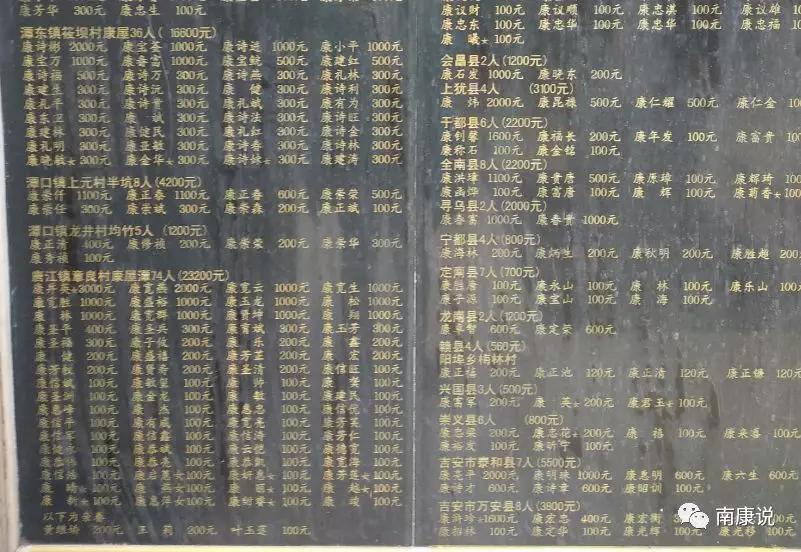 康芳华 200元 康忠生 100元
潭东镇筱坝村康屋36人(16600元)
康诗彬 2000元 康宝荃 1000元 康诗运 1000元 康小平 1000元
康宝万 1000元 康春富 1000元 康宝鲩 500元 康建红 500元
康诗福 500元 康诗万 300元 康诗燕 300元 康礼林 300元
康建生 300元 康诗沅 300元 康 健 300元 康诗利 300元
康礼平 300元 康诗贵 300元 康礼斌 300元 康有为 300元
康东卫 300元 康 斌 300元 康诗法 300元 康诗旺 300元
康建林 300元 康健民 300元 康礼红 300元 康诗金 300元
康礼明 300元 康亚敏 300元 康诗春 300元 康诗林 300元
康晓敏★ 300元 康金华★ 300元 康诗妹★ 300元 康建涛 300元
潭口镇上元村半坑8人(4200元)
康崇仟 1100元 康正泰 1100元 康正春 600元 康崇荣 500元
康崇任 300元 康崇斌 300元 康崇森 200元 康正斌 100元
潭口镇龙井村均竹5人(1200元)
康正清 400元 康修祯 200元 康崇荣 200元 康崇华 300元
康秀祯 100元
唐江镇章良村康屋潭74人(23200元)
康开英★3000元 康宽燕 2000元 康宽云 1000元 康宽生 1000元
康宽胜 1000元 康盛裕 1000元 康玉龙 1000元 康 松 1000元
康 林 1000元 康宽辉 1000元 康贤坤 1000元 康 翔 1000元
康圣平 400元 康圣兵 300元 康育斌 300元 康玉芳 300元
康圣福 300元 康子攸 200元 康 乐 200元 康 鑫 200元
康 健 200元 康盛禧 200元 康芳芷 200元 康 宏 200元
康芳权 200元 康贤寿 200元 康圣清 200元 康信旺 100元
康信斌 100元 康敏玺 100元 康 帅 100元 康 龚 100元
康圣洲 100元 康金龙 100元 康 敏 100元 康建民 100元
康惠峰 100元 康 杰 100元 康惠忠 100元 康信优 100元
康信平 100元 康有威 100元 康宽亮 100元 康芳芙 100元
康信军 100元 康信鑫 100元 康信涛 100元 康芳仁 100元
100元 100元 康云恺 100元 康德宽 100元
康恭 100元 康恭亮 100元 康恭凯 100元 康宽海 100元
康信浩 100元 康后惠★100元 康妍惠★100元 康芳莲★100元
康 燕★100元 康 燕★100元 康 丽★100元 康 越★100元
康 新★100元 康惠萍★100元 康甜香★100元 康 琼 100元
以下为余卷
黄维娇 200元 王 莉 200元 叶玉莲 100元
康议时 100元 康议顺 100元 康忠淇 100元 康议雄 100元
康忠东 100元 康忠华 100元 康忠华 100元 康忠福 100元
康 曦★ 100元
会昌县2人(1200元)
康石发 1000元 康晓东 200元
上犹县4人 (3100元)
康 炜 2000元 康昆禄 500元 康仁耀 500元 康仁金 100元
于都县6人(2200元)
康钊馨 1600元 康福长 200元 康年发 100元 康富贵 100元
康称石 100元 康金铭 100元
全南县8人(2200元)
康洪璋 1100元 康贵唐 500元 康原璋 100元 康辉琦 100元
康函烨 100元 康富唐 100元 康 辉 100元 康菊香★ 100元
寻乌县2人(2000元)
康春富 1000元 康春贵 1000元
宁都县4人(800元)
康海林 200元 康炳生 200元 康秋明 200元 康胜超 200元
定南县7人(700元)
康胜唐 100元 康永山 100元 康 林 100元 康乐山 100元
康子源 100元 康宝山 100元 康 海 100元
龙南县2人(1200元)
康章智 600元 康定荣 600元
赣县4人(560元)
阳埠乡枧林村
康正禧 200元 康正池 120元 康正清 120元 康正镰 120元
兴国县3人(500元)
康富军 200元 康 英★ 200元 康君玉★ 100元
崇义县6人 (800元)
康忠荣 200元 康忠花★ 200元 康 禧 100元 康来喜 100元
康裕发 100元 康昕宁 100元
吉安市泰和县7人(5500元)
康亮平 2000元 康明珠 1000元 康惠明 600元 康六生 600元
康诗才 600元 康诗章 600元 康昭训 100元
吉安市万安县8人(3800元)
康湖珍★1600元 康宏忠 400元 康宏衡
康招林 100元 康定华 100元 康光辉 100元 康光移 100元
南康说